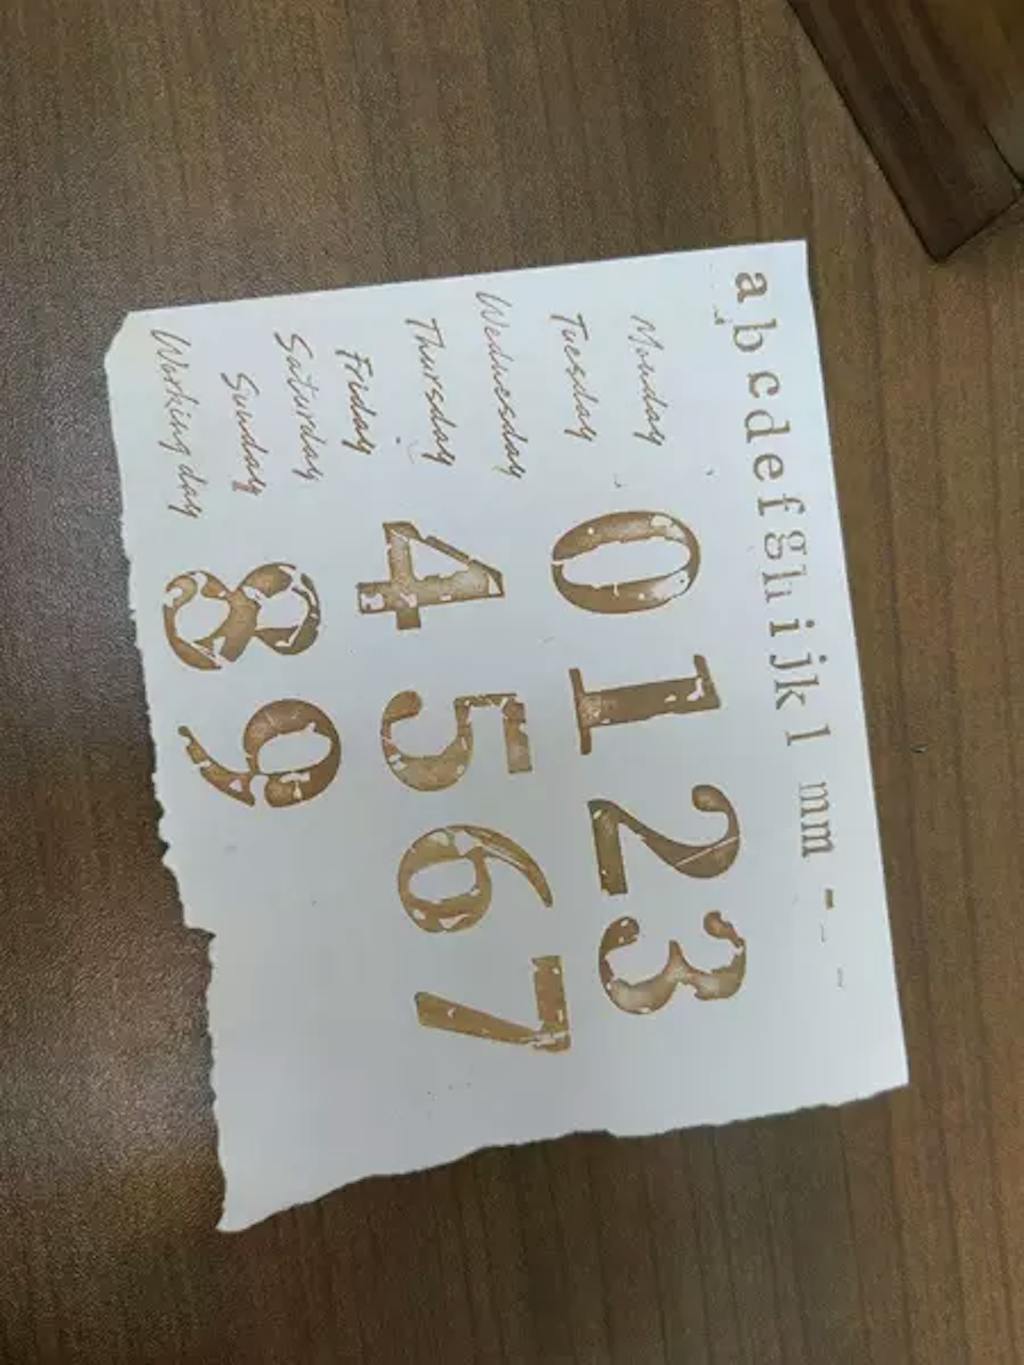 a b c d e f g h i j k l m m - - -
Monday
Tuesday
Wednesday
Thursday
Friday
Saturday
Sunday
Working day
0 1 2 3
4 5 6 7
8 9